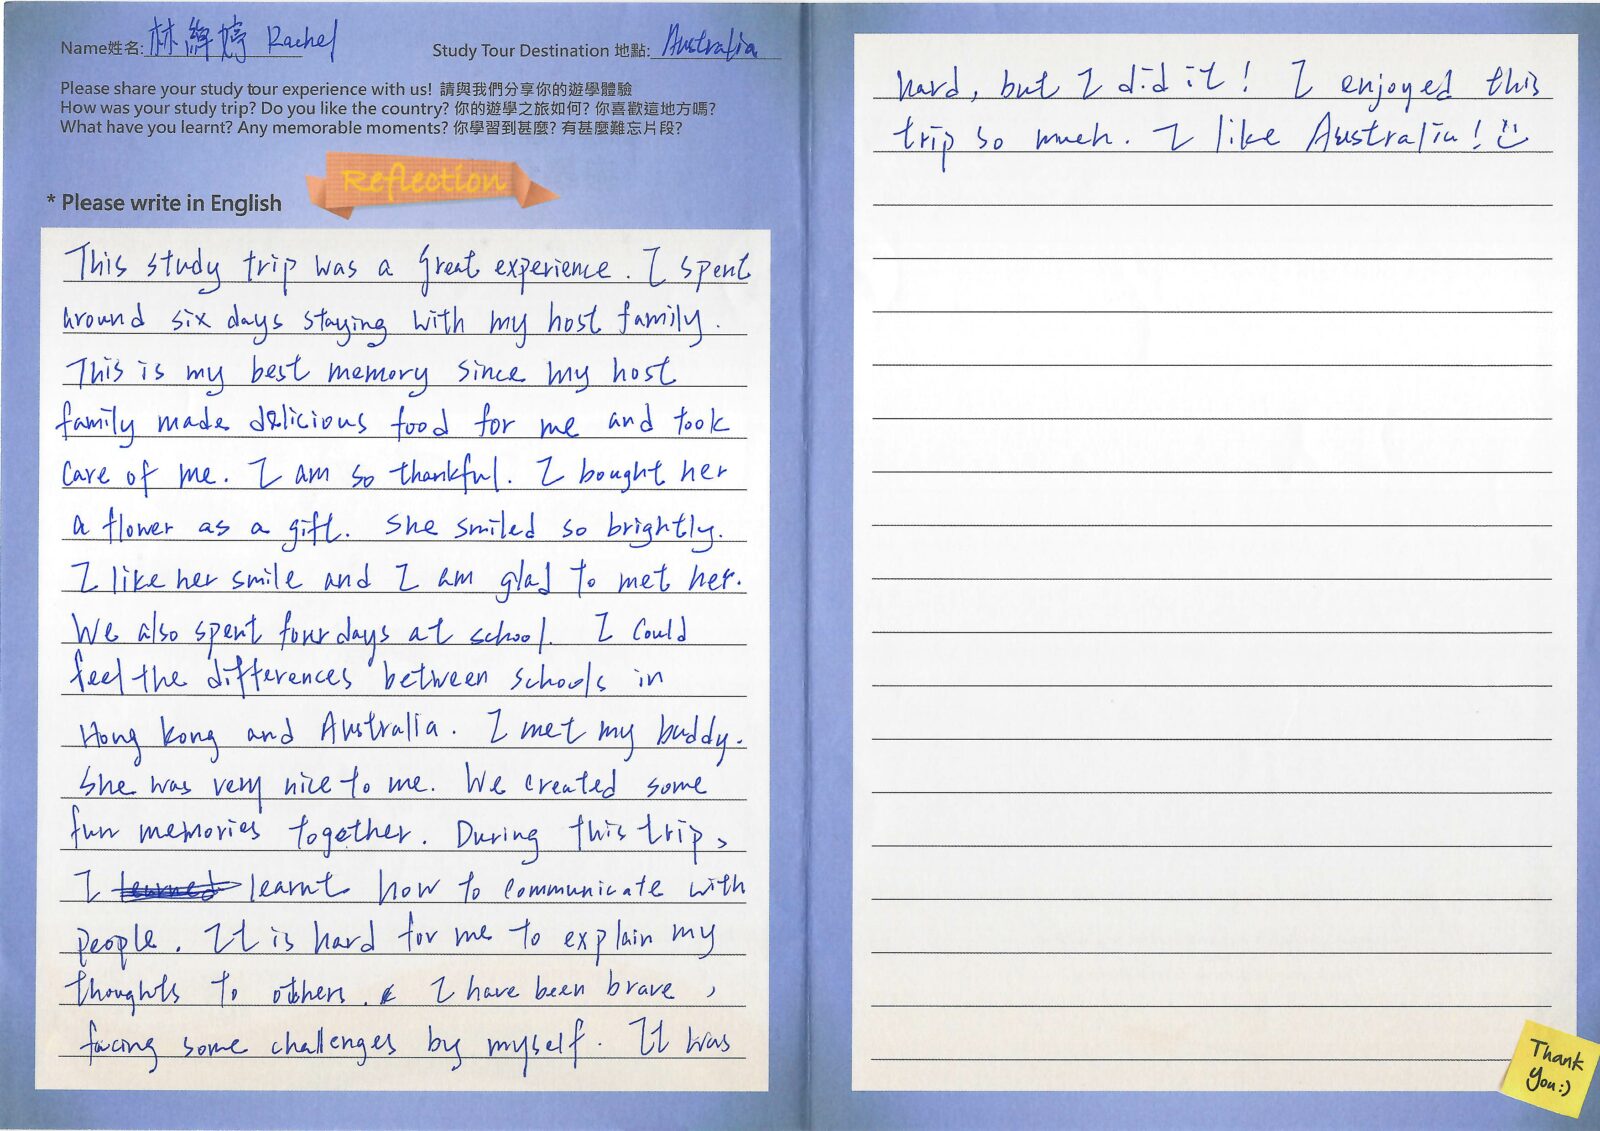 Name姓名: 林綽婷 Rachel
Study Tour Destination 地點: Australia
Please share your study tour experience with us! 請與我們分享你的遊學體驗
How was your study trip? Do you like the country? 你的遊學之旅如何? 你喜歡這地方嗎?
What have you learnt? Any memorable moments? 你學習到甚麼? 有甚麼難忘片段?
Reflection
* Please write in English
This study trip was a great experience. I spent
around six days staying with my host family.
This is my best memory since my host
family made delicious food for me and took
care of me. I am so thankful. I bought her
a flower as a gift. She smiled so brightly.
I like her smile and I am glad to met her.
We also spent four days at school. I could
feel the differences between schools in
Hong Kong and Australia. I met my buddy.
She was very nice to me. We created some
fun memories together. During this trip,
I learned learnt how to communicate with
people. It is hard for me to explain my
thoughts to others. I have been brave,
facing some challenges by myself. It was
hard, but I did it! I enjoyed this
trip so much. I like Australia!
Thank
You:)